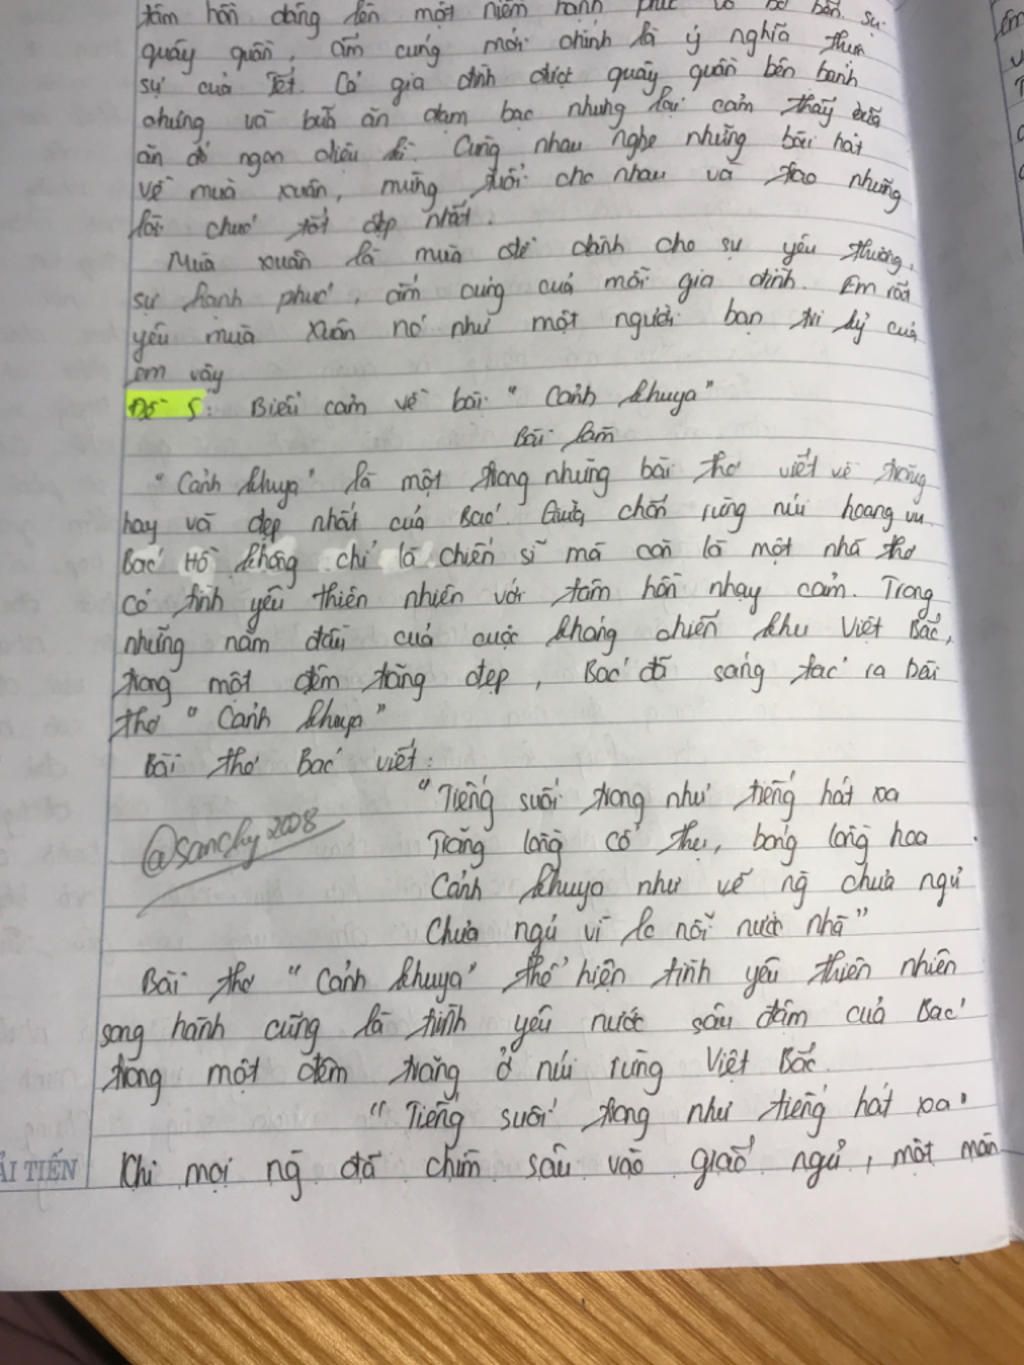 tâm hồn dâng lên một niềm hạnh phúc vô bờ bến. sự
quây quần, ấm cúng mới chính là ý nghĩa thực
sự của Tết. Cả gia đình được quây quần bên bánh
chưng và bữa ăn đạm bạc nhưng lại cảm thấy bữa
ăn đó ngon diệu kì. Cùng nhau nghe những bài hát
về mùa xuân, mừng tuổi cho nhau và trao những
lời chúc tốt đẹp nhất.
Mùa xuân là mùa để dành cho sự yêu thương,
sự hạnh phúc, ấm cúng của mỗi gia đình. Em rất
yêu mùa xuân nó như một người bạn tri kỷ của
em vậy
Đề 5: Biểu cảm về bài "Cảnh khuya"
Bài làm
"Cảnh khuya" là một trong những bài thơ viết về trăng
hay và đẹp nhất của Bác. Giữa chốn rừng núi hoang vu
Bác Hồ không chỉ là chiến sĩ mà còn là một nhà thơ
có tình yêu thiên nhiên với tâm hồn nhạy cảm. Trong
những năm đầu của cuộc kháng chiến khu Việt Bắc,
trong một đêm trăng đẹp, Bác đã sáng tác ra bài
thơ "Cảnh khuya"
Bài thơ Bác viết:
"Tiếng suối trong như tiếng hát xa
@sanchy2008
Trăng lồng cổ thụ, bóng lồng hoa
Cảnh khuya như vẽ ng chưa ngủ
Chưa ngủ vì lo nỗi nước nhà"
Bài thơ "Cảnh khuya" thể hiện tình yêu thiên nhiên
song hành cũng là tình yêu nước sâu đậm của Bác
trong một đêm trăng ở núi rừng Việt Bắc.
"Tiếng suối trong như tiếng hát xa"
ẢI TIẾN
Khi mọi ng đã chìm sâu vào giấc ngủ, một màn